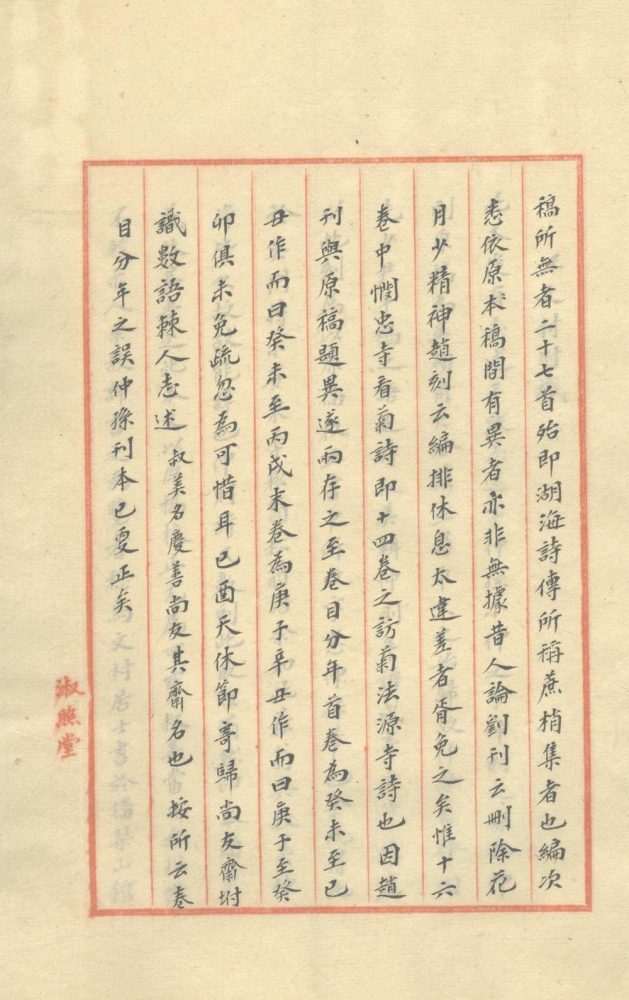 稿所無者二十七首殆即湖海詩傳所稱蔗梢集者也編次
悉依原本稿間有異者亦非無據昔人論劉刊云刪除花
月少精神趙刻云編排休息太違差者胥免之矣惟十六
卷中憫忠寺看菊詩即十四卷之訪菊法源寺詩也因趙
刊與原稿題異遂兩存之至卷目分年首卷為癸未至己
丑作而曰癸未至丙戌末卷為庚子辛丑作而曰庚子至癸
卯俱未免疏忽為可惜耳已酉天休節寄歸尚友齋坿
識數語棘人志述 叔美名慶善尚友其齋名也按所云卷
目分年之誤仲孫刊本已更正矣
淑照堂